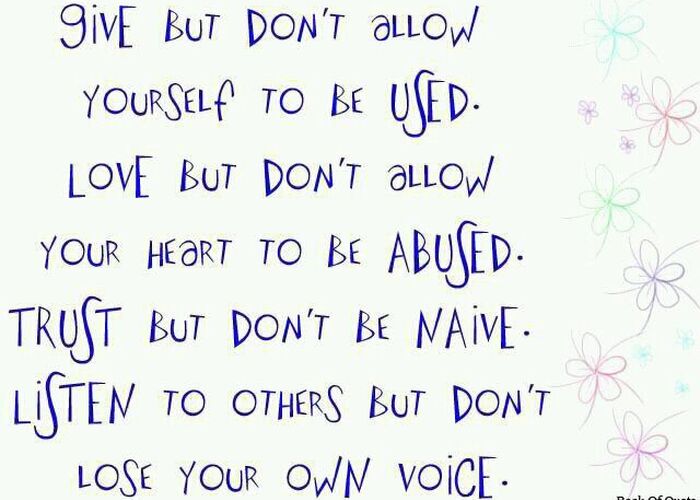 GIVE BUT DON'T ALLOW
YOURSELF TO BE USED.
LOVE BUT DON'T ALLOW
YOUR HEART TO BE ABUSED.
TRUST BUT DON'T BE NAIVE.
LISTEN TO OTHERS BUT DON'T
LOSE YOUR OWN VOICE.